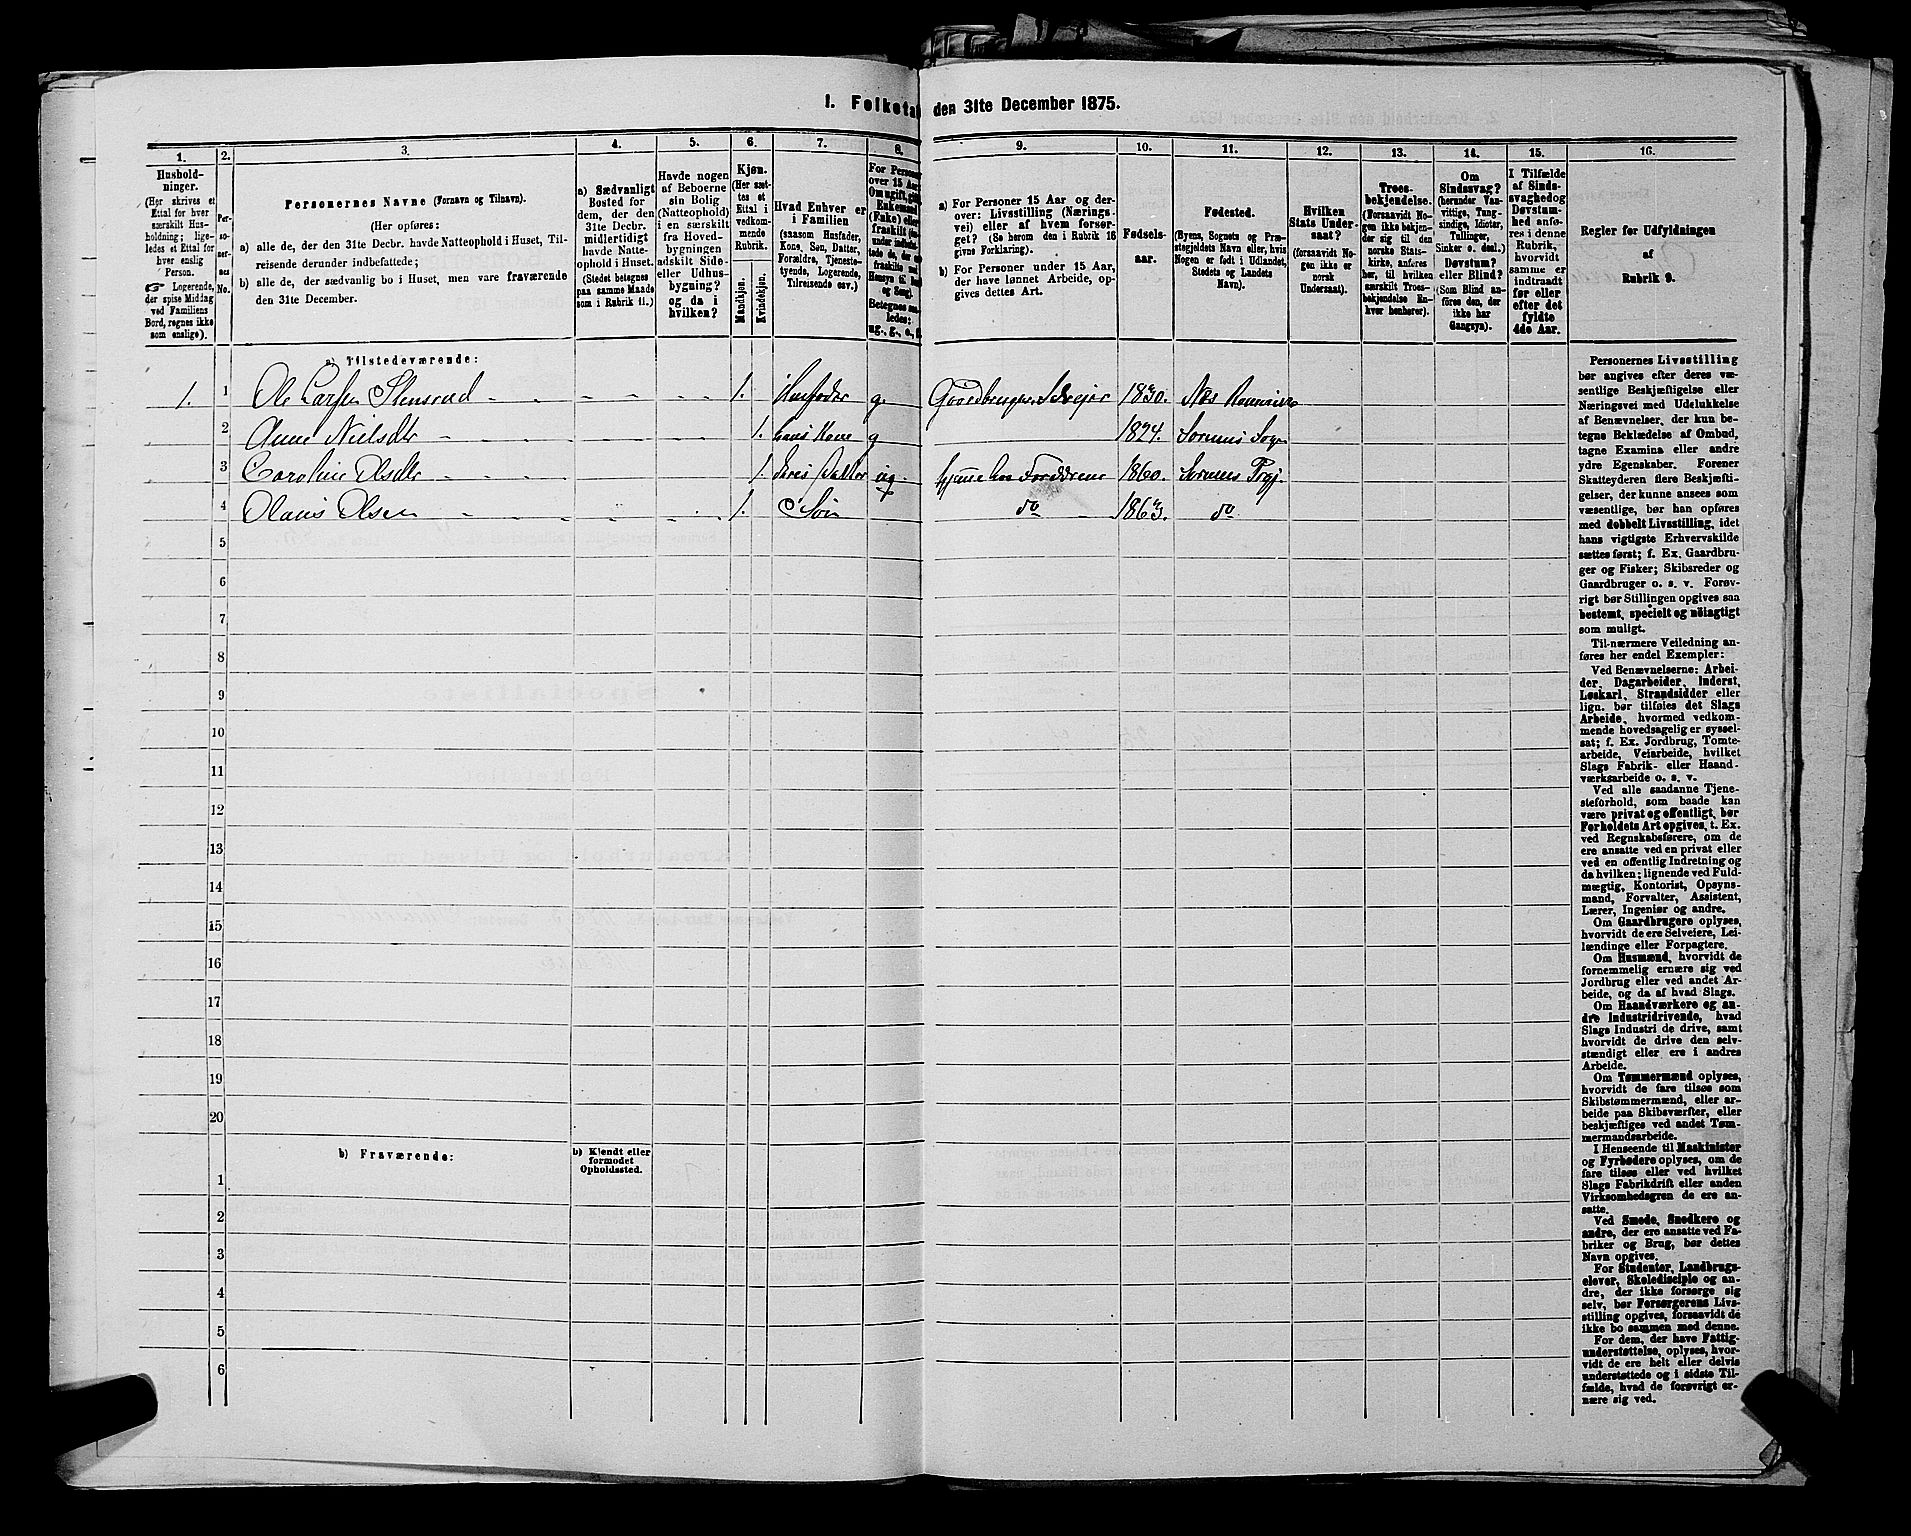 1. Folketal den 31te December 1875.
1.
2.
3.
4.
5.
6.
7.
8.
9.
10.
11.
12.
13.
14.
15.
16.
Husholdninger.
(Her skrives et
Ettal for hver
særskilt Husholdning; ligeledes et Ettal for
hver enslig
Person.
☞ Logerende,
der spise Middag
ved Familiens
Bord, regnes ikke
som enslige).
Personernes No.
Personernes Navne (Fornavn og Tilnavn).
(Her opføres:
a) alle de, der den 31te Decbr. havde Natteophold i Huset, Tilreisende derunder indbefattede;
b) alle de, der sædvanlig bo i Huset, men vare fraværende
den 31te December.
a) Sædvanligt
Bosted for
dem, der den
31te Decbr.
midlertidigt
havde Natteophold i Huset.
(Stedet betegnes
paa samme Maade
som i Rubrik 11.)
Havde nogen
af Beboerne
sin Bolig
(Natteophold)
i en særskilt
fra Hovedbygningen
adskilt Side-
eller Udhusbygning?
og da i
hvilken?
Kjøn.
(Her sættes et
Ettal i
vedkommende
Rubrik.
Mandkjøn.
Kvindekjøn.
Hvad Enhver er
i Familien
(saasom Husfader,
Kone, Søn, Datter,
Forældre, Tjenestetyende, Logerende,
Tilreisende osv.)
For Personer
over 15 Aar:
Betegnes saaledes:
ug., g., e., f.
a) For Personer 15 Aar og derover: Livsstilling (Næringsvei) eller af hvem forsørget? (Se herom den i Rubrik 16
givne Forklaring).
b) For Personer under 15 Aar,
der have lønnet Arbeide, opgives dettes Art.
Fødselsaar.
Fødested.
(Byens, Sognets og Præstegjeldets Navn eller, hvis
Nogen er født i Udlandet,
Stedets og Landets
Navn).
Hvilken
Stats Undersaat?
(forsaavidt Nogen ikke er
norsk
Undersaat).
Troesbekjendelse.
(Forsaavidt Nogen ikke bekjender sig til den
norske Statskirke, anføres
her, til hvilken
særskilt Troesbekjendelse Enhver henhører).
Om
Sindssvag?
(herunder Vanvittige, Tungsindige, Idioter,
Tullinger,
Sinker o. desl.)
Døvstum?
eller Blind?
(Som Blind anføres den, der
ikke har
Gangsyn).
I Tilfælde
af Sindssvaghed og
Døvstumhed anføres i denne
Rubrik,
hvorvidt
samme er
indtraadt
før eller
efter det
fyldte
4de Aar.
Regler for Udfyldningen
af
Rubrik 9.
a) Tilstedeværende:
1. 1 Ole Larsen Stensrud 1. Husfader g. Gaardbruger Selveier 1830. Næs Romerige
2 Anne Nielsdtr 1. hans Kone g 1824. Sorums Sogn
3 Caroline Olsdtr 1. deres Datter ug. hjeme hos Forældrene 1860. Sorums Prgj.
4 Olaus Olsen 1. Søn do 1863. do
5
6
7
8
9
10
11
12
13
14
15
16
17
18
19
20
b) Fraværende:
b) Kjendt eller
formodet
Opholdssted.
1
2
3
4
5
6
Personernes Livsstilling
bør angives efter deres væsentlige Beskjæftigelse eller
Næringsvei med Udelukkelse
af Benævnelser, der kun betegne Beklædelse af Ombud,
tagne Examina eller andre
ydre Egenskaber. Forener
Skatteyderen flere Beskjæftigelser, der kunne ansees som
væsentlige, bør han opføres
med dobbelt Livsstilling, idet
hans vigtigste Erhvervskilde
sættes først; f. Ex. Gaardbruger og Fisker; Skibsreder og
Gaardbruger o. s. v. Forøvrigt bør Stillingen opgives saa
bestemt, specielt og nöiagtigt
som muligt.
Til nærmere Veiledning anføres her endel Exempler:
Ved Benævnelserne: Arbeider, Dagarbeider, Inderst,
Løskarl, Strandsidder eller
lign. bør tilføies det Slags
Arbeide, hvormed vedkommende hovedsagelig er sysselsat; f. Ex. Jordbrug, Tomtearbeide, Veiarbeide, hvilket
Slags Fabrik- eller Haandværksarbeide o. s. v.
Ved alle saadanne Tjenesteforhold, som baade kan
være privat og offentligt, bør
Forholdets Art opgives, t. Ex.
ved Regnskabsførere, om de
ere ansatte ved en privat eller
ved en offentlig Indretning og
da hvilken; lignende ved Fuldmægtig, Kontorist, Opsynsmand, Forvalter, Assistent,
Lærer, Ingeniør og andre.
Om Gaardbrugere oplyses,
hvorvidt de ere Selveiere, Leilændinge eller Forpagtere.
Om Husmænd, hvorvidt de
fornemmelig ernære sig ved
Jordbrug eller ved andet Arbeide, og da af hvad Slags.
Om Haandværkere og andre Industridrivende, hvad
Slags Industri de drive, samt
hvorvidt de drive den selvstændigt eller ere i andres
Arbeide.
Om Tømmermænd oplyses,
hvorvidt de fare tilsøs som
Skibstømmermænd, eller arbeide paa Skibsværfter, eller
beskjæftiges ved andet Tømmermandsarbeide.
I Henseende til Maskinister
og Fyrbødere oplyses, om de
fare tilsøs eller ved hvilket
Slags Fabrikdrift eller anden
Virksomhedsgren de ere ansatte.
Ved Smede, Snedkere og
andre, der ere ansatte ved Fabriker og Brug, bør dettes
Navn opgives.
For Studenter, Landbrugselever, Skoledisciple og andre, der ikke forsørge sig
selv, bør Forsørgerens Livsstilling opgives, forsaavidt de
ikke bo sammen med denne.
For dem, der have Fattigunderstøttelse, oplyses, hvorvidt de ere helt eller delvis
understøttede og i sidste Tilfælde, hvad de forøvrigt ernære sig ved.